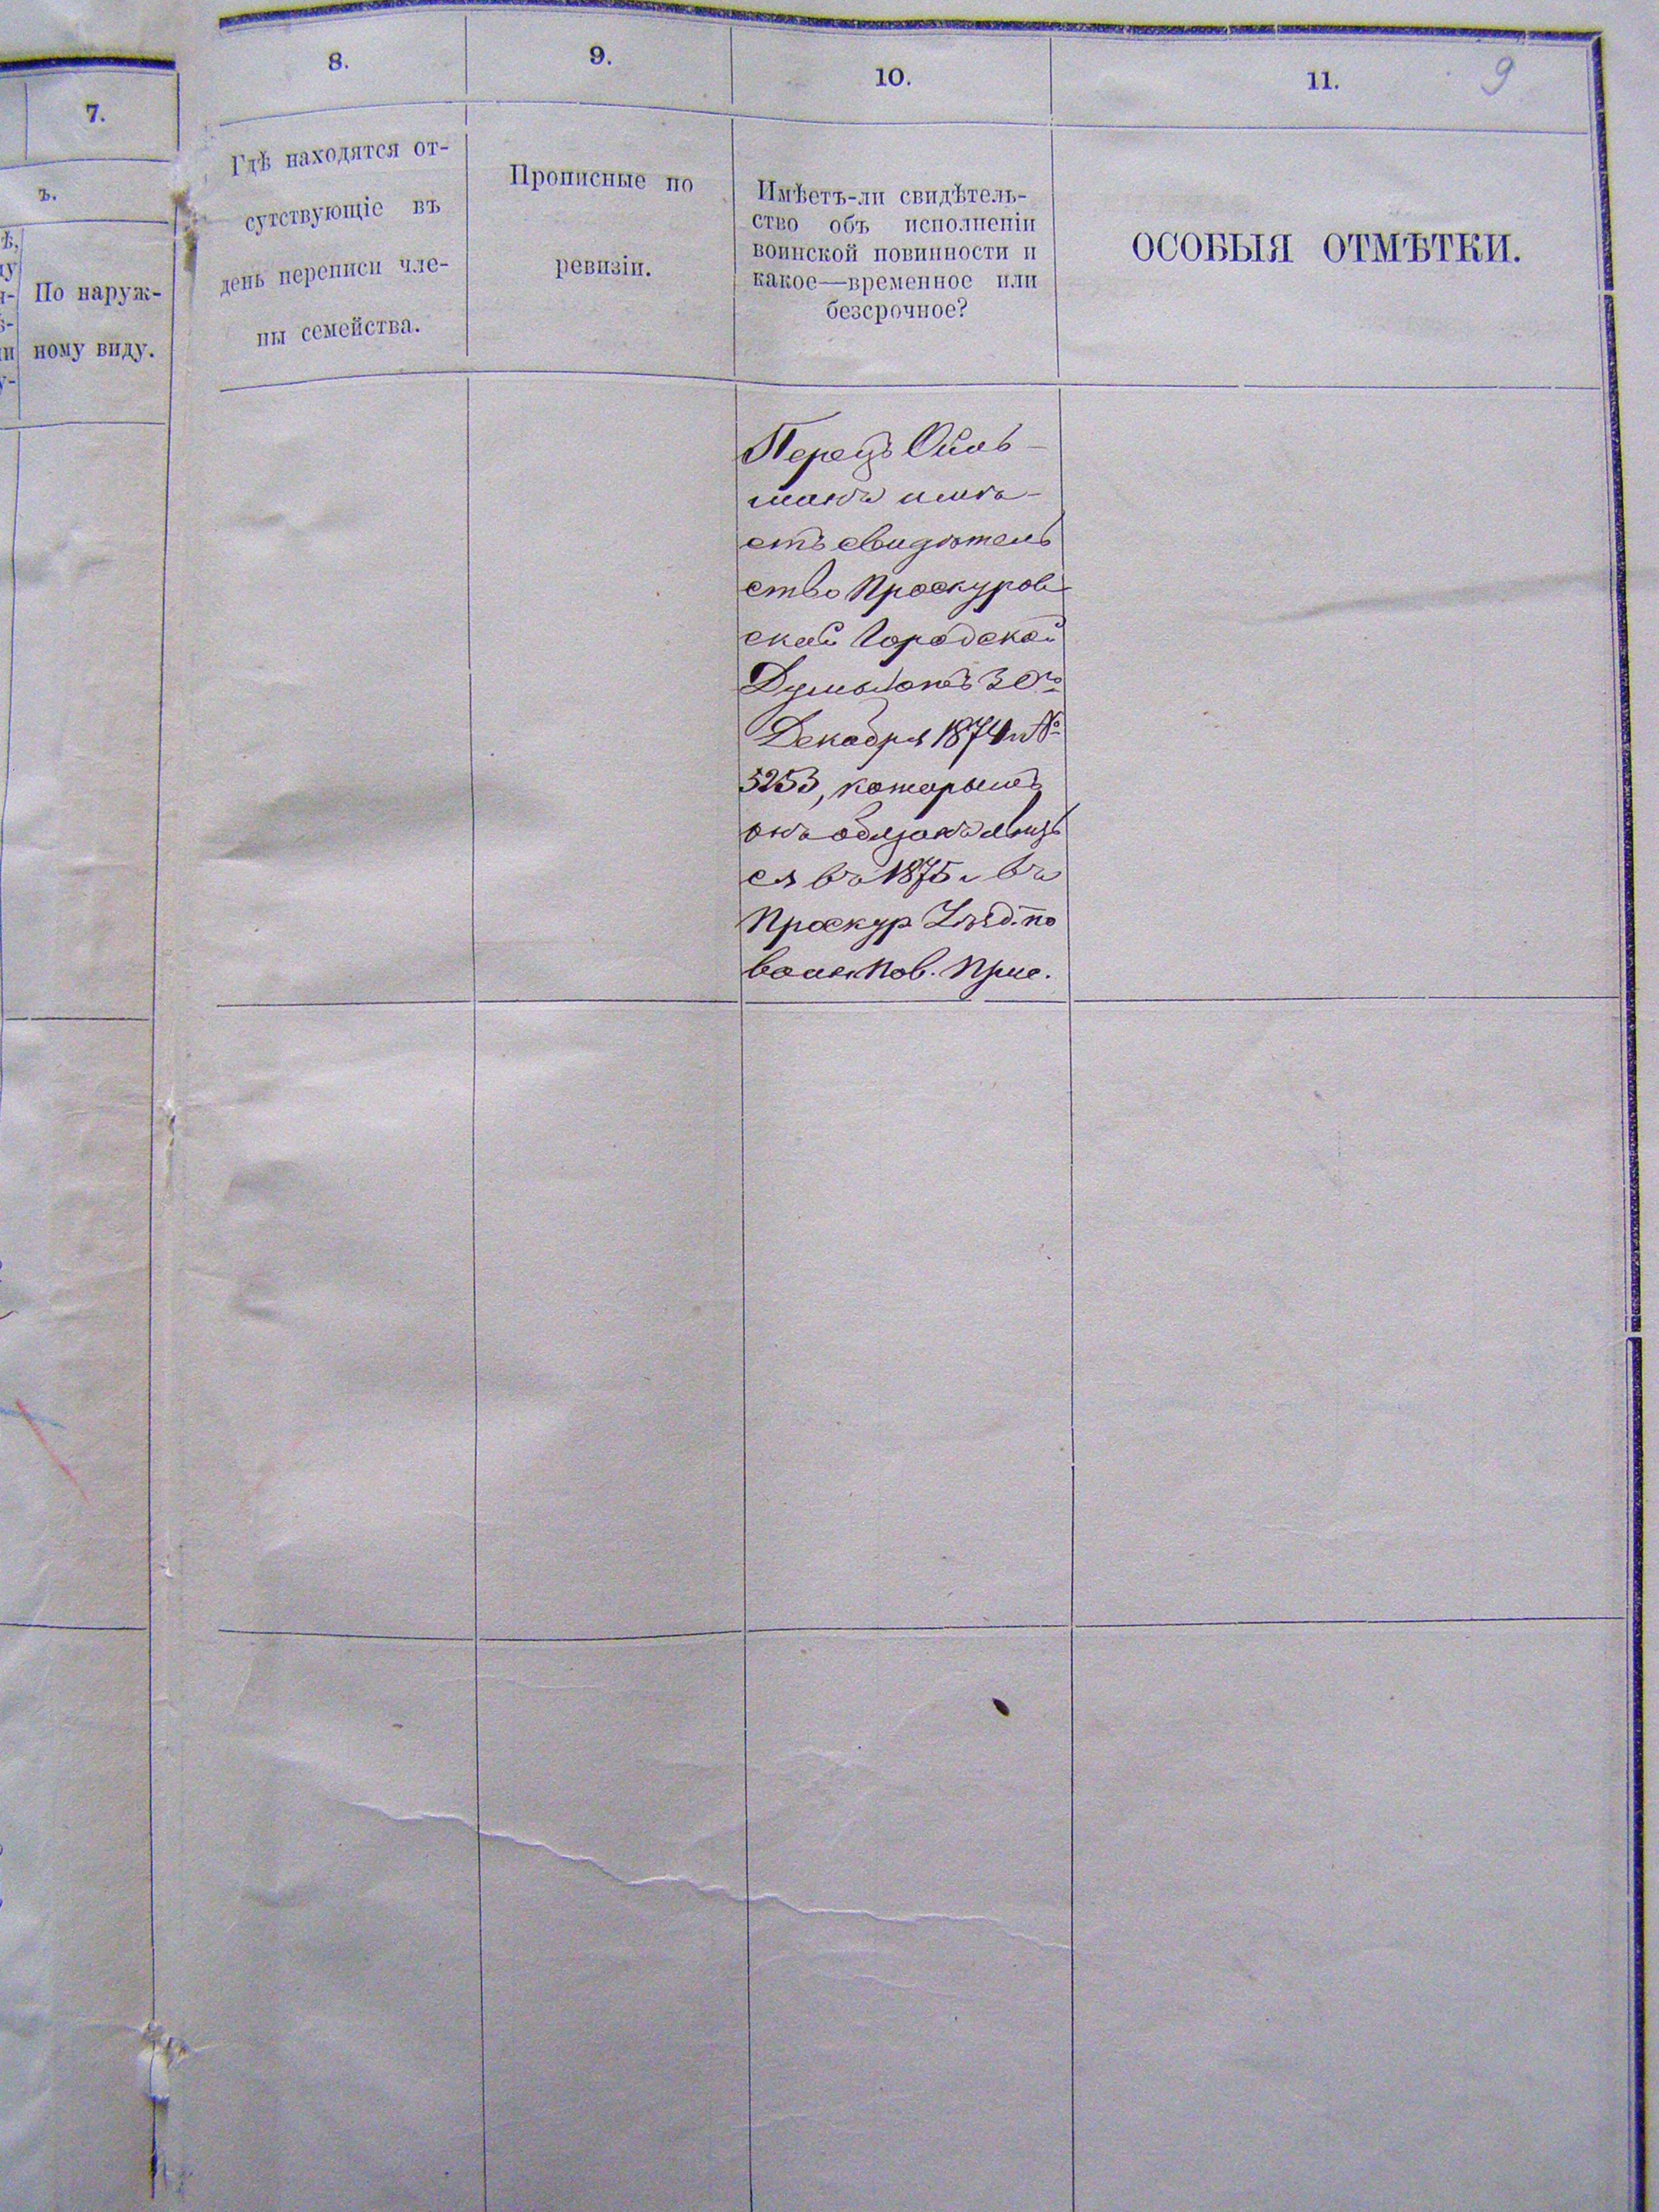 7.
ъ.
По наруж-
ному виду.
8.
9.
10.
11.
9
Гдѣ находятся от-
сутствующіе въ
день переписи чле-
ны семейства.
Прописные по
ревизіи.
Имѣетъ-ли свидѣтель-
ство объ исполненіи
воинской повинности и
какое—временное или
безсрочное?
ОСОБЫЯ ОТМѢТКИ.
Перецъ Ойль-
манъ имѣ-
етъ свидѣтель
ство Проскуров
ской Городской
Думы отъ 30го
Декабря 1874 г №
5253, которымъ
онъ обязанъ явить
ся въ 1875 г въ
Проскур Уѣзд. по
воин Пов. Прис.